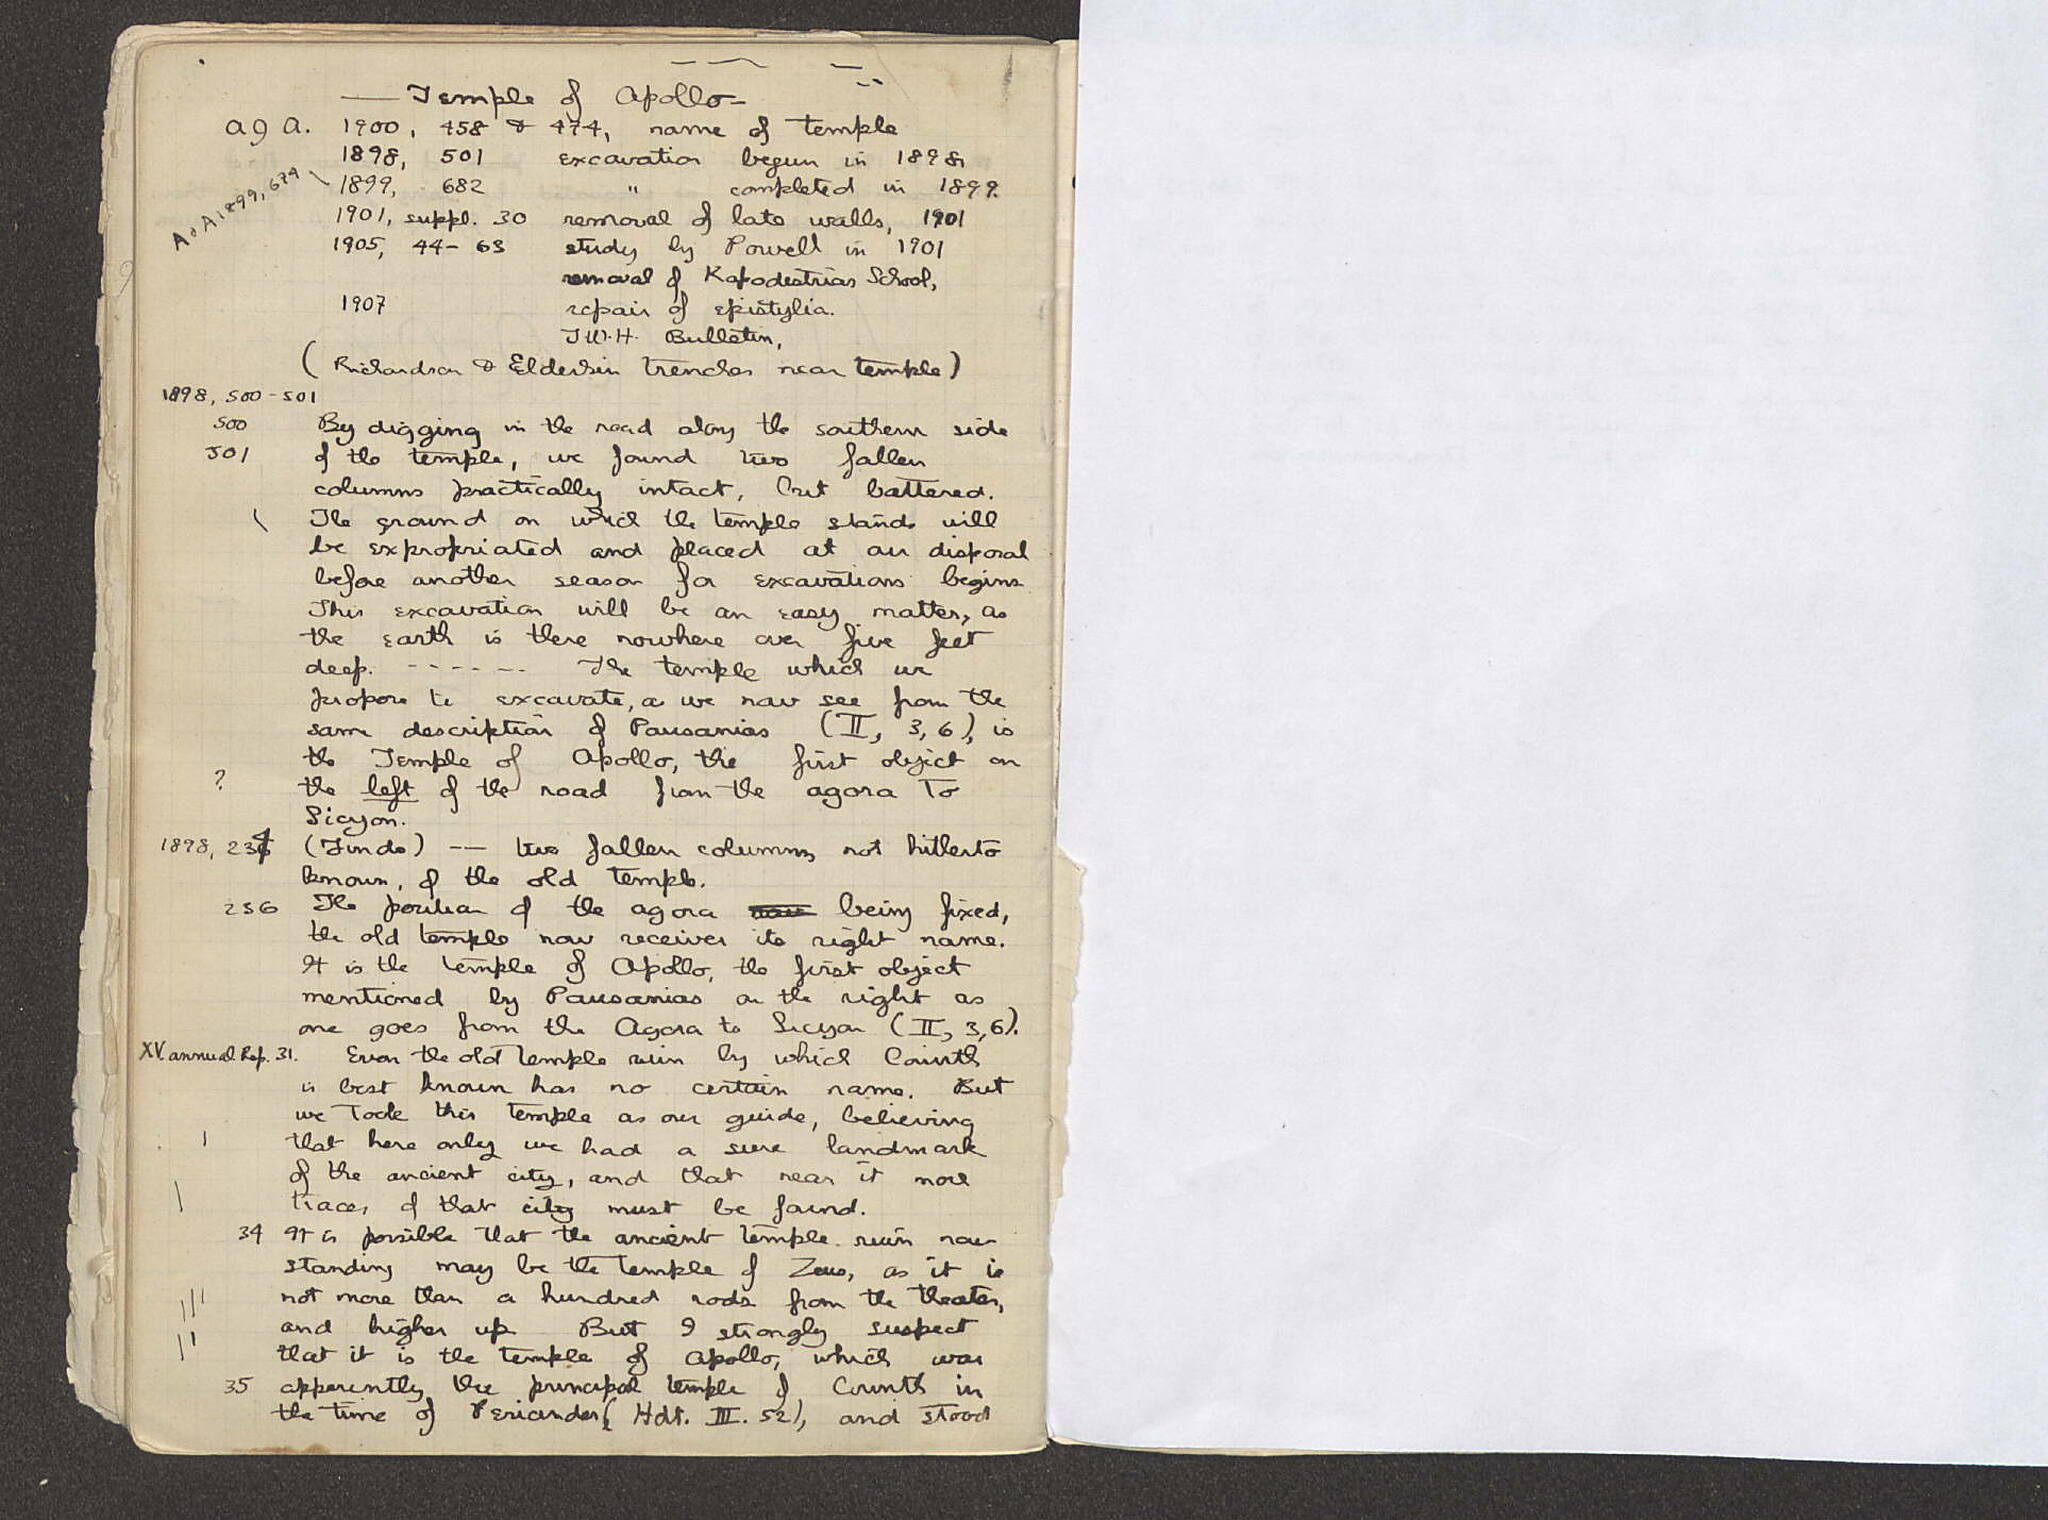 — Temple of Apollo —
AJA. 1900, 458 & 474, name of temple
1898, 501 excavation begun in 1898,
AJA 1899, 679 \ 1899, 682 " completed in 1899.
1901, suppl. 30 removal of late walls, 1901
1905, 44-63 study by Powell in 1901
removal of Kapodestrias School,
1907 repair of epistylia.
T.W.H. Bulletin,
(Richardson & Elderkin trenches near temple)
1898, 500-501
500 By digging in the road along the southern side
501 of the temple, we found two fallen
columns practically intact, but battered.
\ The ground on which the temple stands will
be expropriated and placed at our disposal
before another season for excavations begins
This excavation will be an easy matter, as
the earth is there nowhere over five feet
deep. ------ The temple which we
propose to excavate, as we now see from the
same description of Pausanias (II, 3, 6), is
the Temple of Apollo, the first object on
? the left of the road from the agora to
Sicyon.
1898, 234 (Finds) -- two fallen columns, not hitherto
known, of the old temple.
236 The position of the agora being fixed,
the old temple now receives its right name.
It is the temple of Apollo, the first object
mentioned by Pausanias on the right as
one goes from the Agora to Sicyon (II, 3, 6).
XV. Annual Rep. 31. Even the old temple ruin by which Corinth
is best known has no certain name. But
we took this temple as our guide, believing
that here only we had a sure landmark
of the ancient city, and that near it more
traces of that city must be found.
34 It is possible that the ancient temple ruin now
standing may be the temple of Zeus, as it is
not more than a hundred rods from the theater,
and higher up. But I strongly suspect
that it is the temple of Apollo, which was
35 apparently the principal temple of Corinth in
the time of Periander (Hdt. III. 52), and stood